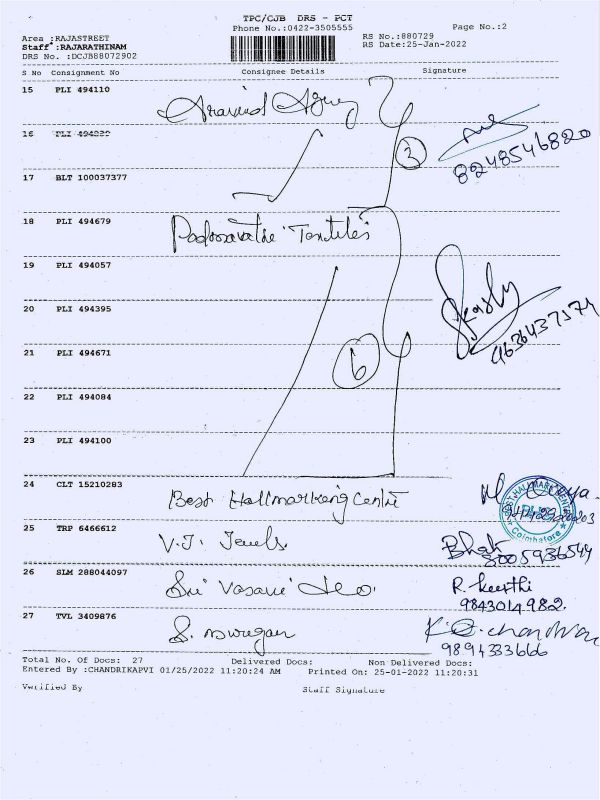 TPC/CJB DRS - PCT
Phone No.:0422-3505555
Page No.:2
Area :RAJASTREET
Staff :RAJARATHINAM
DRS No. :DCJB88072902
RS No.:880729
RS Date:25-Jan-2022
S No Consignment No Consignee Details Signature
15 PLI 494110
3
8248546820
16 PLI
17 BLT 100037377
18 PLI 494679 Padmavathi Textiles
19 PLI 494057
20 PLI 494395
21 PLI 494671
6
22 PLI 494084
23 PLI 494100
24 CLT 15210283 Best Hallmarking Centre
BEST HALLMARKING
Coimbatore
25 TRP 6466612 V.J. Jewels.
8005936544
26 SLM 288044097 Sri Vasavi R. Keerthi
9843014982.
27 TVL 3409876 S. murugan
9894333666
Total No. Of Docs: 27 Delivered Docs: Non Delivered Docs:
Entered By :CHANDRIKAPVI 01/25/2022 11:20:24 AM Printed On: 25-01-2022 11:20:31
Verified By Staff Signature